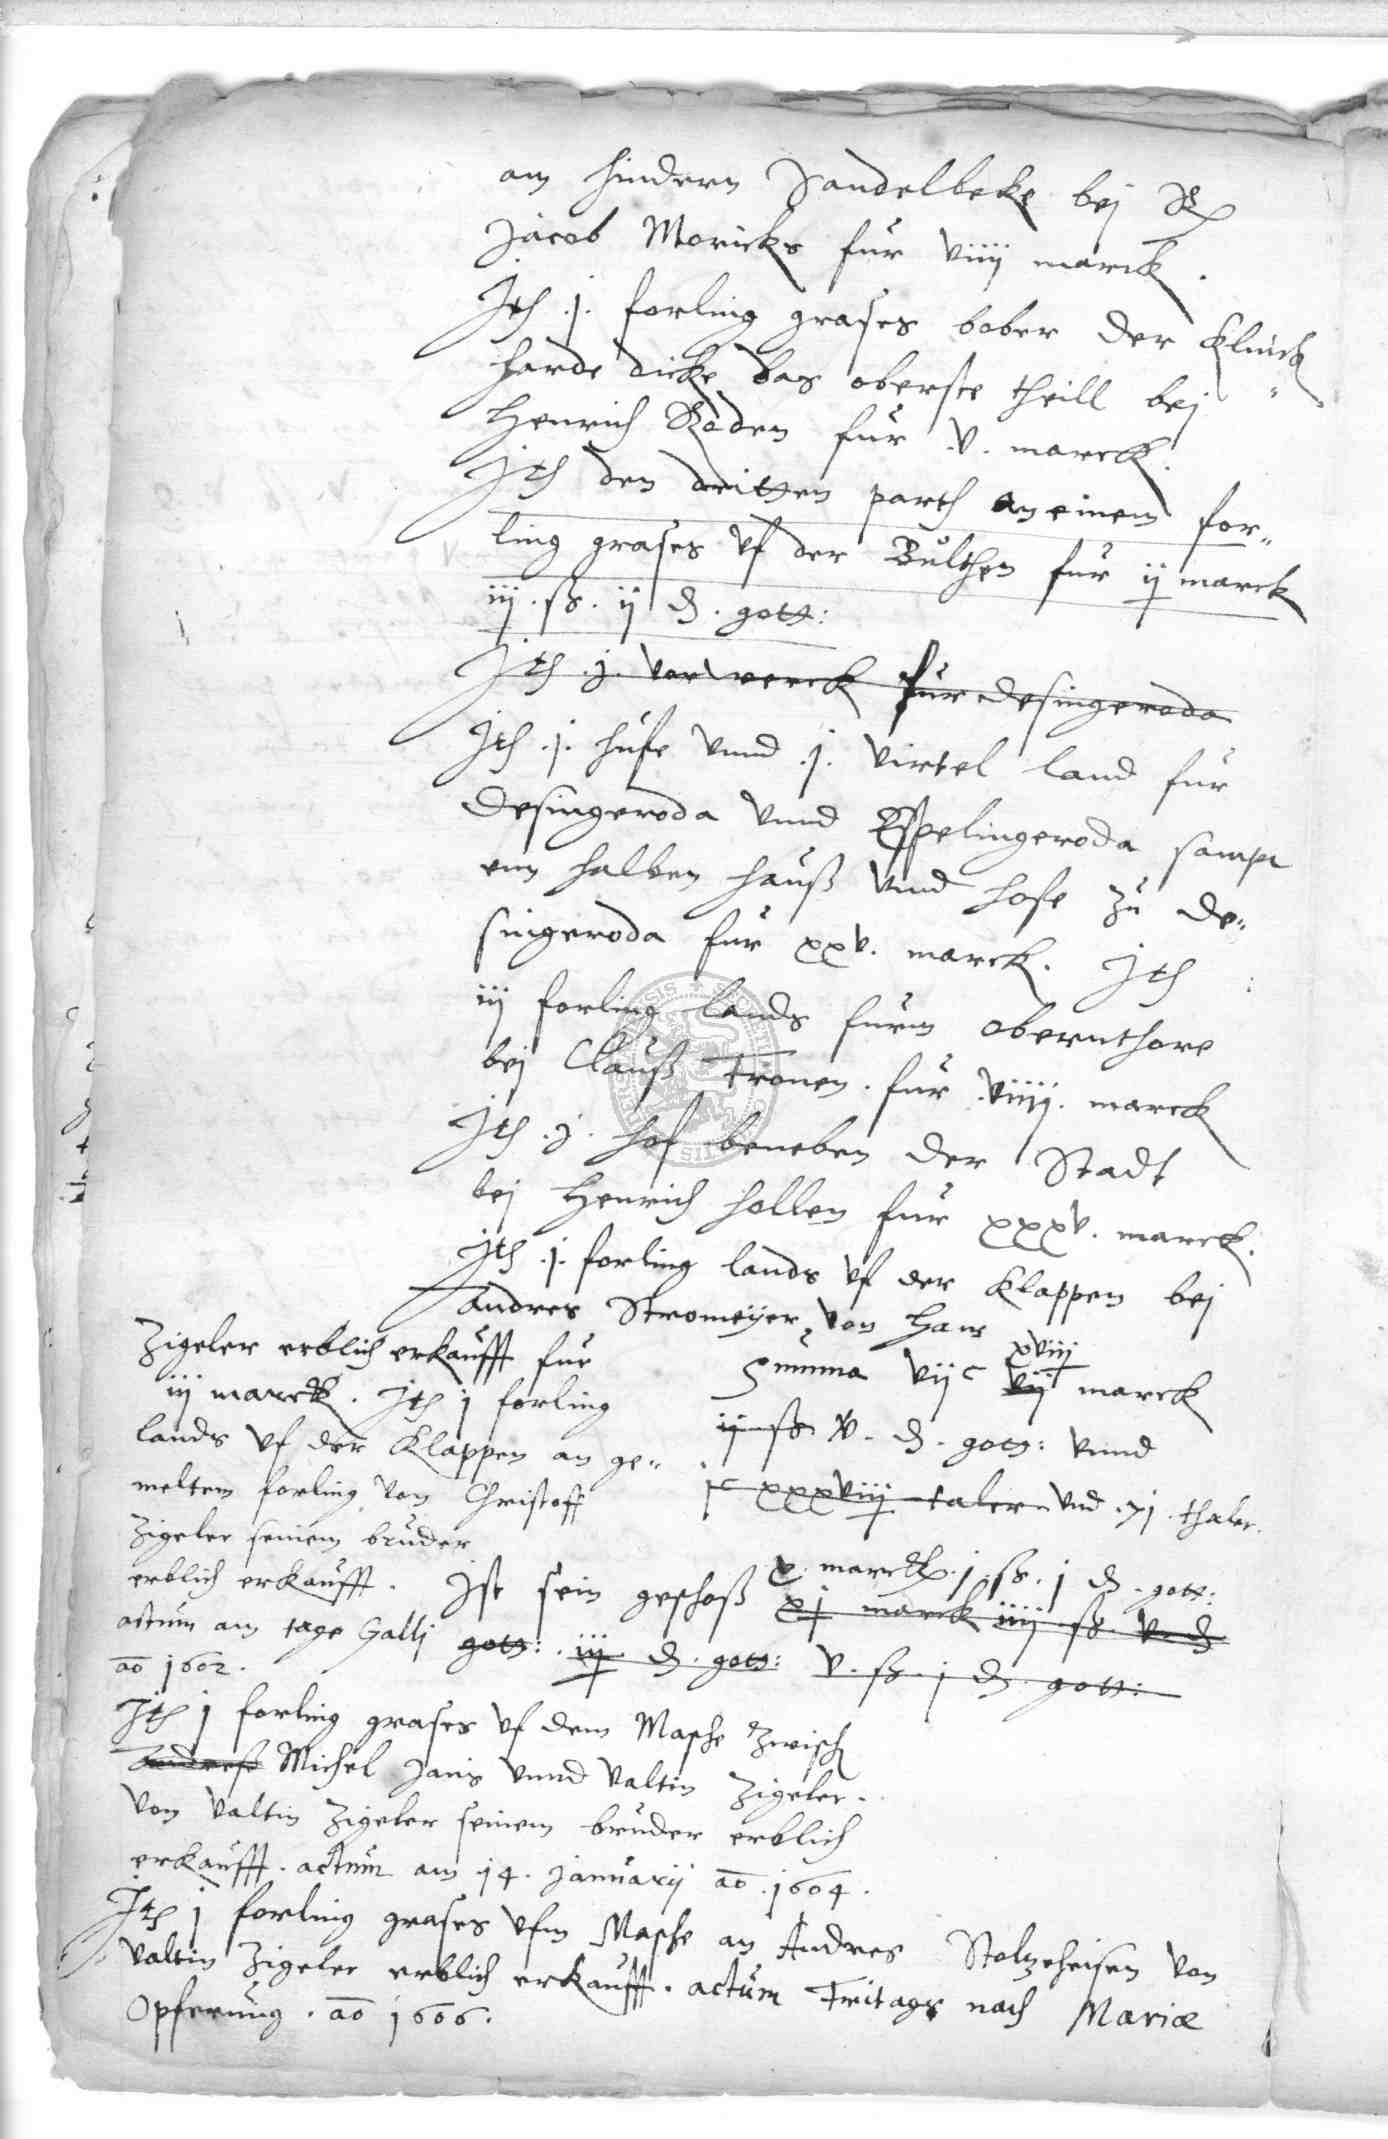 am hindern Sandelbeke bej H
Jacob Moricks für viiij marck.
Jth .j. forling grases bober der Klinck„
harde dicke das oberste theill bej
Henrich Roden für .v. marck.
Jth den dritten parth an einem for„
ling grases vf der Bulthen für ij marck
iij . ß . ij ₰ . gott:
Jth .j. vorwerck für Desingeroda
Jth .j. hufe vnnd .j. virtel land für
Desingeroda vnnd Esplingeroda sampt
em halben hauß vnd hofe zu De„
singeroda für xxv. marck. Jth
iij forling lands fürm obernthore
bej Clauß Fronen . für .viiij. marck
Jth .j. hof beneben der Stadt
bej Henrich Hollen für xxxv. marck.
Jth .j. forling lands vf der Klappen bej
Andres Stromeyer, von Hans
Zigeler erblich erkaufft für
iij marck. Jth j forling
lands vf der Klappen an ge„
meltem forling von Christoff
Zigeler seinem bruder
erblich erkaufft.
actum am tage Galli
ao 1602.
xviij
Summa vijc vij marck
ij ß v . ₰ . gott: vnnd
jc xxxviij taler vnd .xj. thaler.
x . marck . j . ß . j ₰ . gott:
Jst sein geschoß xj marck iiij ß . v ₰
gott: . iij ₰ . gott: v . ß . j ₰ gott:
Jth j forling grases vf dem Masche zwisch
Andreß Michel Janis vnnd Valtin Zigeler.
von Valtin Zigeler seinem bruder erblich
erkaufft . actum am 14. Januarij ao . 1604.
Jth j forling grases vfm Masche an Andres Stolzeheisen von
Valtin Zigeler erblich erkaufft . actum Fritags nach Mariæ
Opferung . ao 1606.